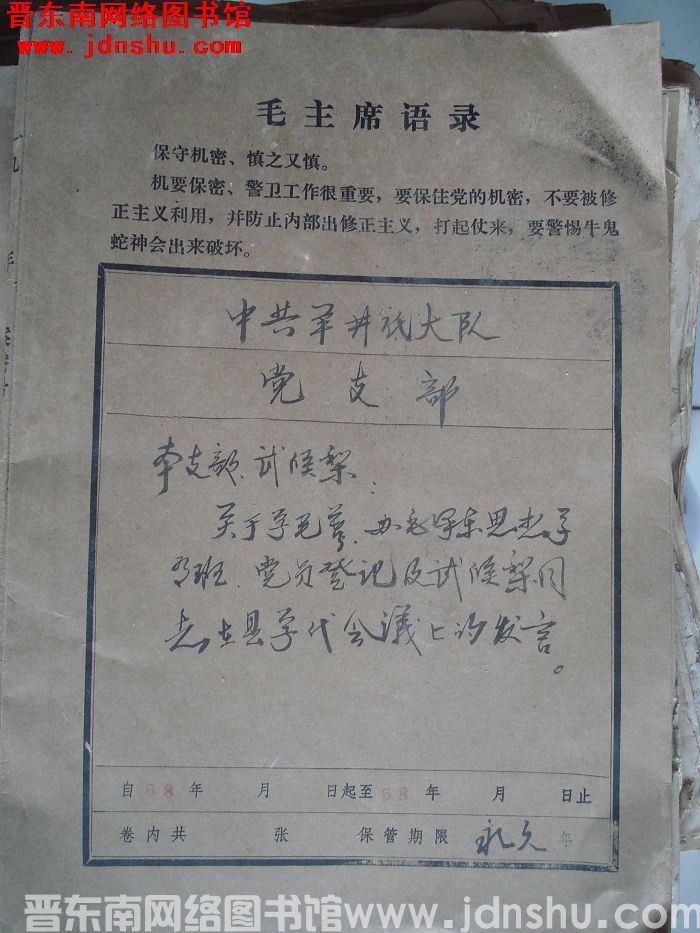 晋东南网络图书馆
www.jdnshu.com
毛主席语录
保守机密、慎之又慎。
机要保密、警卫工作很重要，要保住党的机密，不要被修
正主义利用，并防止内部出修正主义，打起仗来，要警惕牛鬼
蛇神会出来破坏。
中共羊井底大队
党支部
本支部、武侯梨：
关于学毛著、办毛泽东思想学
习班、党员登记及武侯梨同
志在县学代会议上的发言。
自68年 月 日起至68年 月 日止
卷内共 张 保管期限 永久 年
晋东南网络图书馆www.jdnshu.com